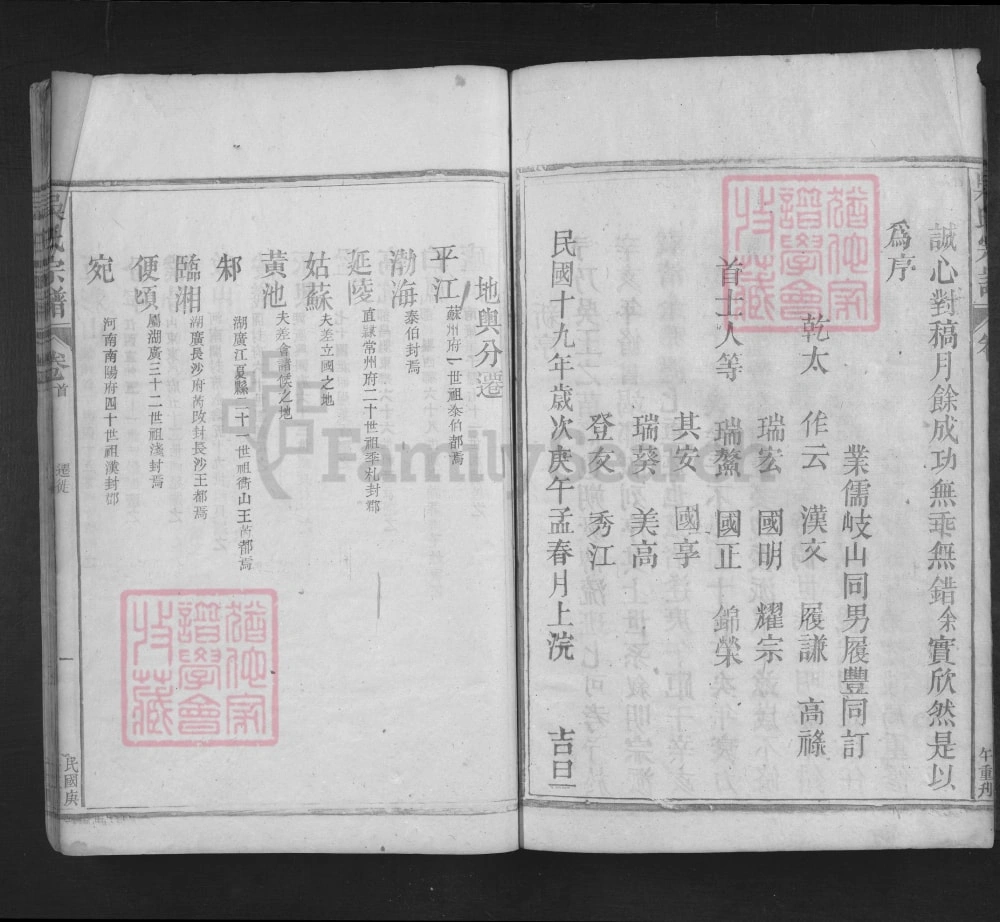 誠心對稿月餘成功無乖無錯余實欣然是以
為序
業儒岐山同男履豐同訂
乾太 作云 漢文 履謙 高祿
瑞宏 國明 耀宗
首士人等 瑞鰲 國正 錦榮
其安 國享
瑞葵 美高
登友 秀江
民國十九年歲次庚午孟春月上浣 吉旦
午重刋
吳氏宗譜 卷 首 遷徙 一 民國庚
地輿分遷
平江 蘇州府一世祖泰伯都焉
渤海 泰伯封焉
延陵 直隸常州府二十世祖季札封郡
姑蘇 夫差立國之地
黃池 夫差會諸侯之地
邾 湖廣江夏縣二十一世祖衡山王芮都焉
臨湘 湖廣長沙府芮改封長沙王都焉
便頃 屬湖廣三十二世祖淺封焉
宛 河南南陽府四十世祖漢封鄧
猶他家譜學會收藏
猶他家譜學會收藏
FamilySearch